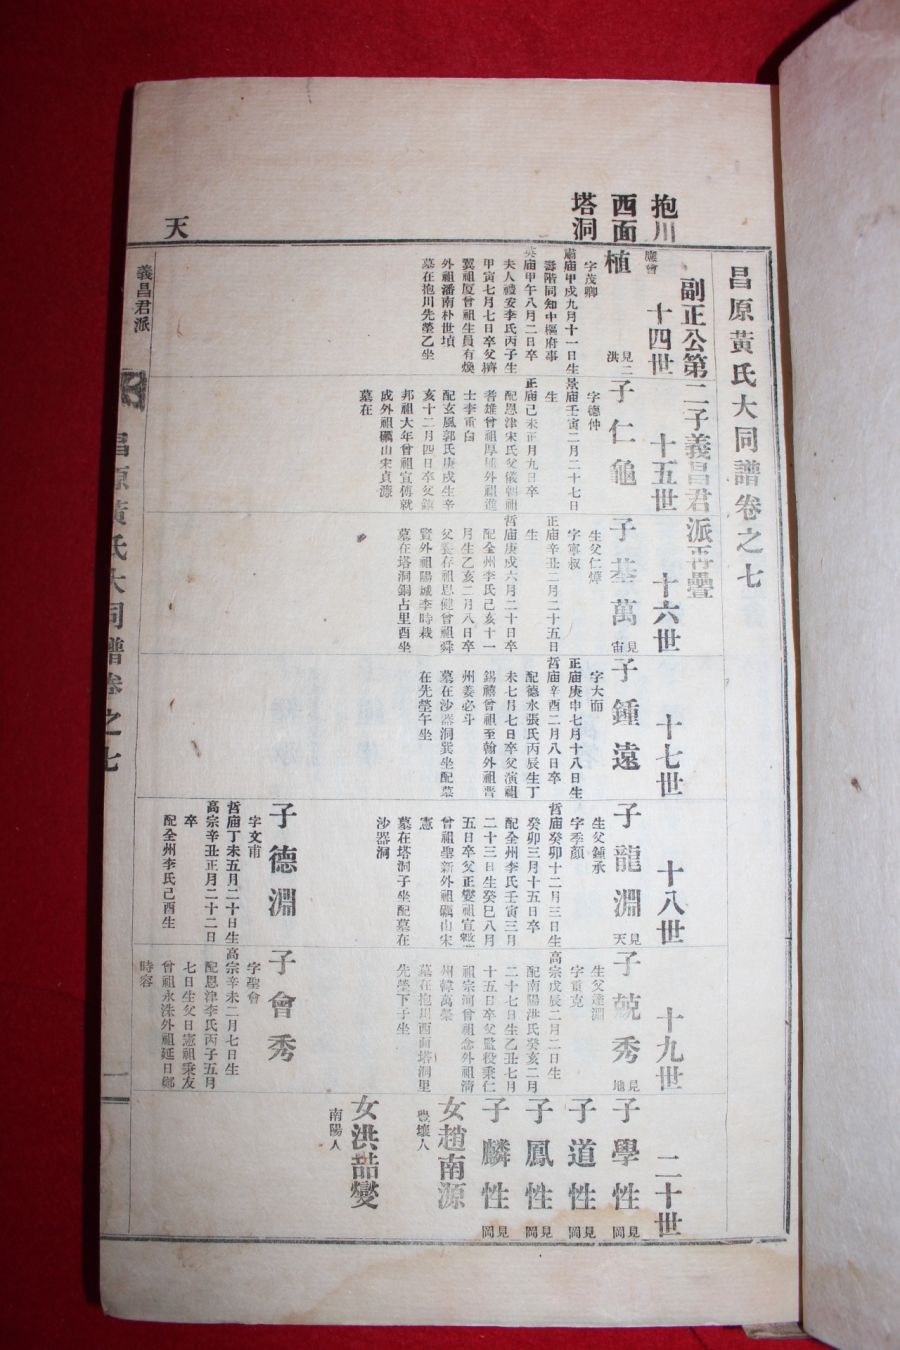 昌原黃氏大同譜卷之七
副正公第二子義昌君派再疊
抱川
西面
塔洞
天
十四世
十五世
十六世
十七世
十八世
十九世
二十世
植
見三
洪
字茂卿
肅庙甲戌九月十一日生
壽階同知中樞府事
英庙甲午八月二日卒
夫人禮安李氏丙子生
甲寅七月七日卒父擠
翼祖厦曾祖生員有煥
外祖潘南朴世墳
墓在抱川先塋乙坐
子仁龜
字德仲
景庙壬寅二月二十七日
生
正庙己未正月九日卒
配恩津宋氏父儀朝祖
耆雄曾祖厚埔外祖進
士李重白
配玄風郭氏庚戌生辛
亥十二月四日卒父鎮
邦祖大年曾祖宣傳就
成外祖礪山宋貞濂
墓在
子基萬
見
宙
生父仁燁
字寧叔
正庙辛丑二月二十五日
生
哲庙庚戌六月二十日卒
配全州李氏己亥十一
月生乙亥二月八日卒
父養存祖思健曾祖舜
賢外祖陽城李時栽
墓在塔洞銅占里酉坐
子鍾遠
字大而
正庙庚申七月十八日生
哲庙辛酉二月八日卒
配德水張氏丙辰生丁
未七月七日卒父演祖
錫禧曾祖至翰外祖晋
州姜必斗
墓在沙器洞巽坐配墓
在先塋午坐
子龍淵
見
天
生父鍾承
字季顔
哲庙癸卯十二月三日生
癸卯三月十五日卒
配全州李氏壬寅三月
二十三日生癸巳八月
五日卒父正燮祖宣敎
曾祖聖新外祖礪山宋
憲
墓在塔洞子坐配墓在
沙器洞
子德淵
字文甫
哲庙丁未五月二十日生
高宗辛丑正月二十二日
卒
配全州李氏己酉生
子兢秀
見
地
生父達淵
字重克
高宗戊辰二月二日生
配南陽洪氏癸亥二月
二十七日生乙丑七月
十五日卒父監役秉仁
祖宗河曾祖念外祖淸
州韓萬榮
墓在抱川西面塔洞里
先塋下子坐
子會秀
字聖會
高宗辛未二月七日生
配恩津李氏丙子五月
七日生父日憲祖乘友
曾祖永洙外祖延日鄭
時容
子學性
見
岡
子道性
見
岡
子鳳性
見
岡
子麟性
見
岡
女趙南源
豊壤人
女洪喆燮
南陽人
義昌君派
昌原黃氏大同譜卷之七
一